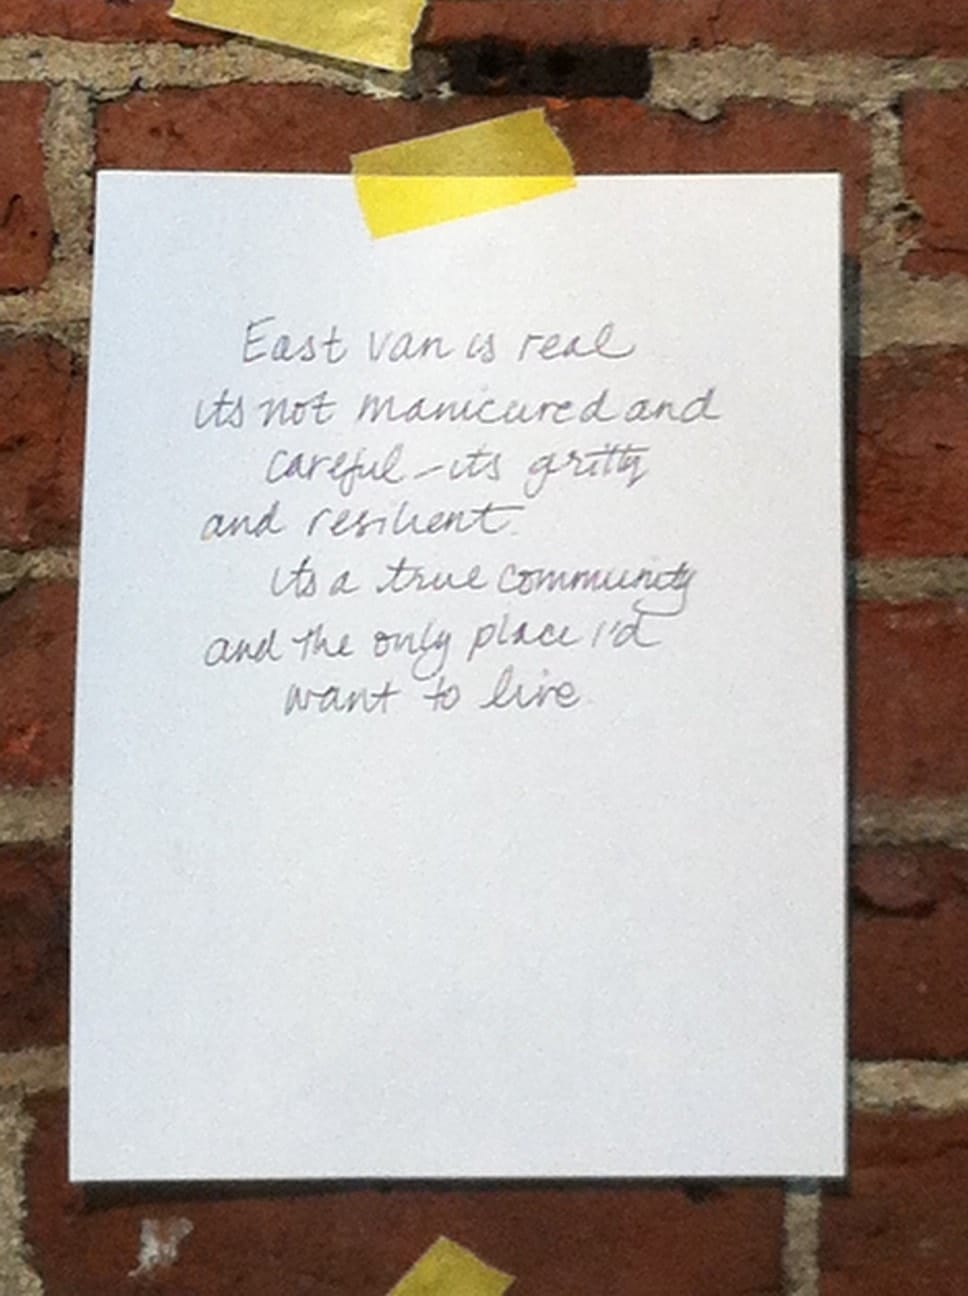 East van is real
its not manicured and
careful - its gritty
and resilient.
its a true community
and the only place I'd
want to live